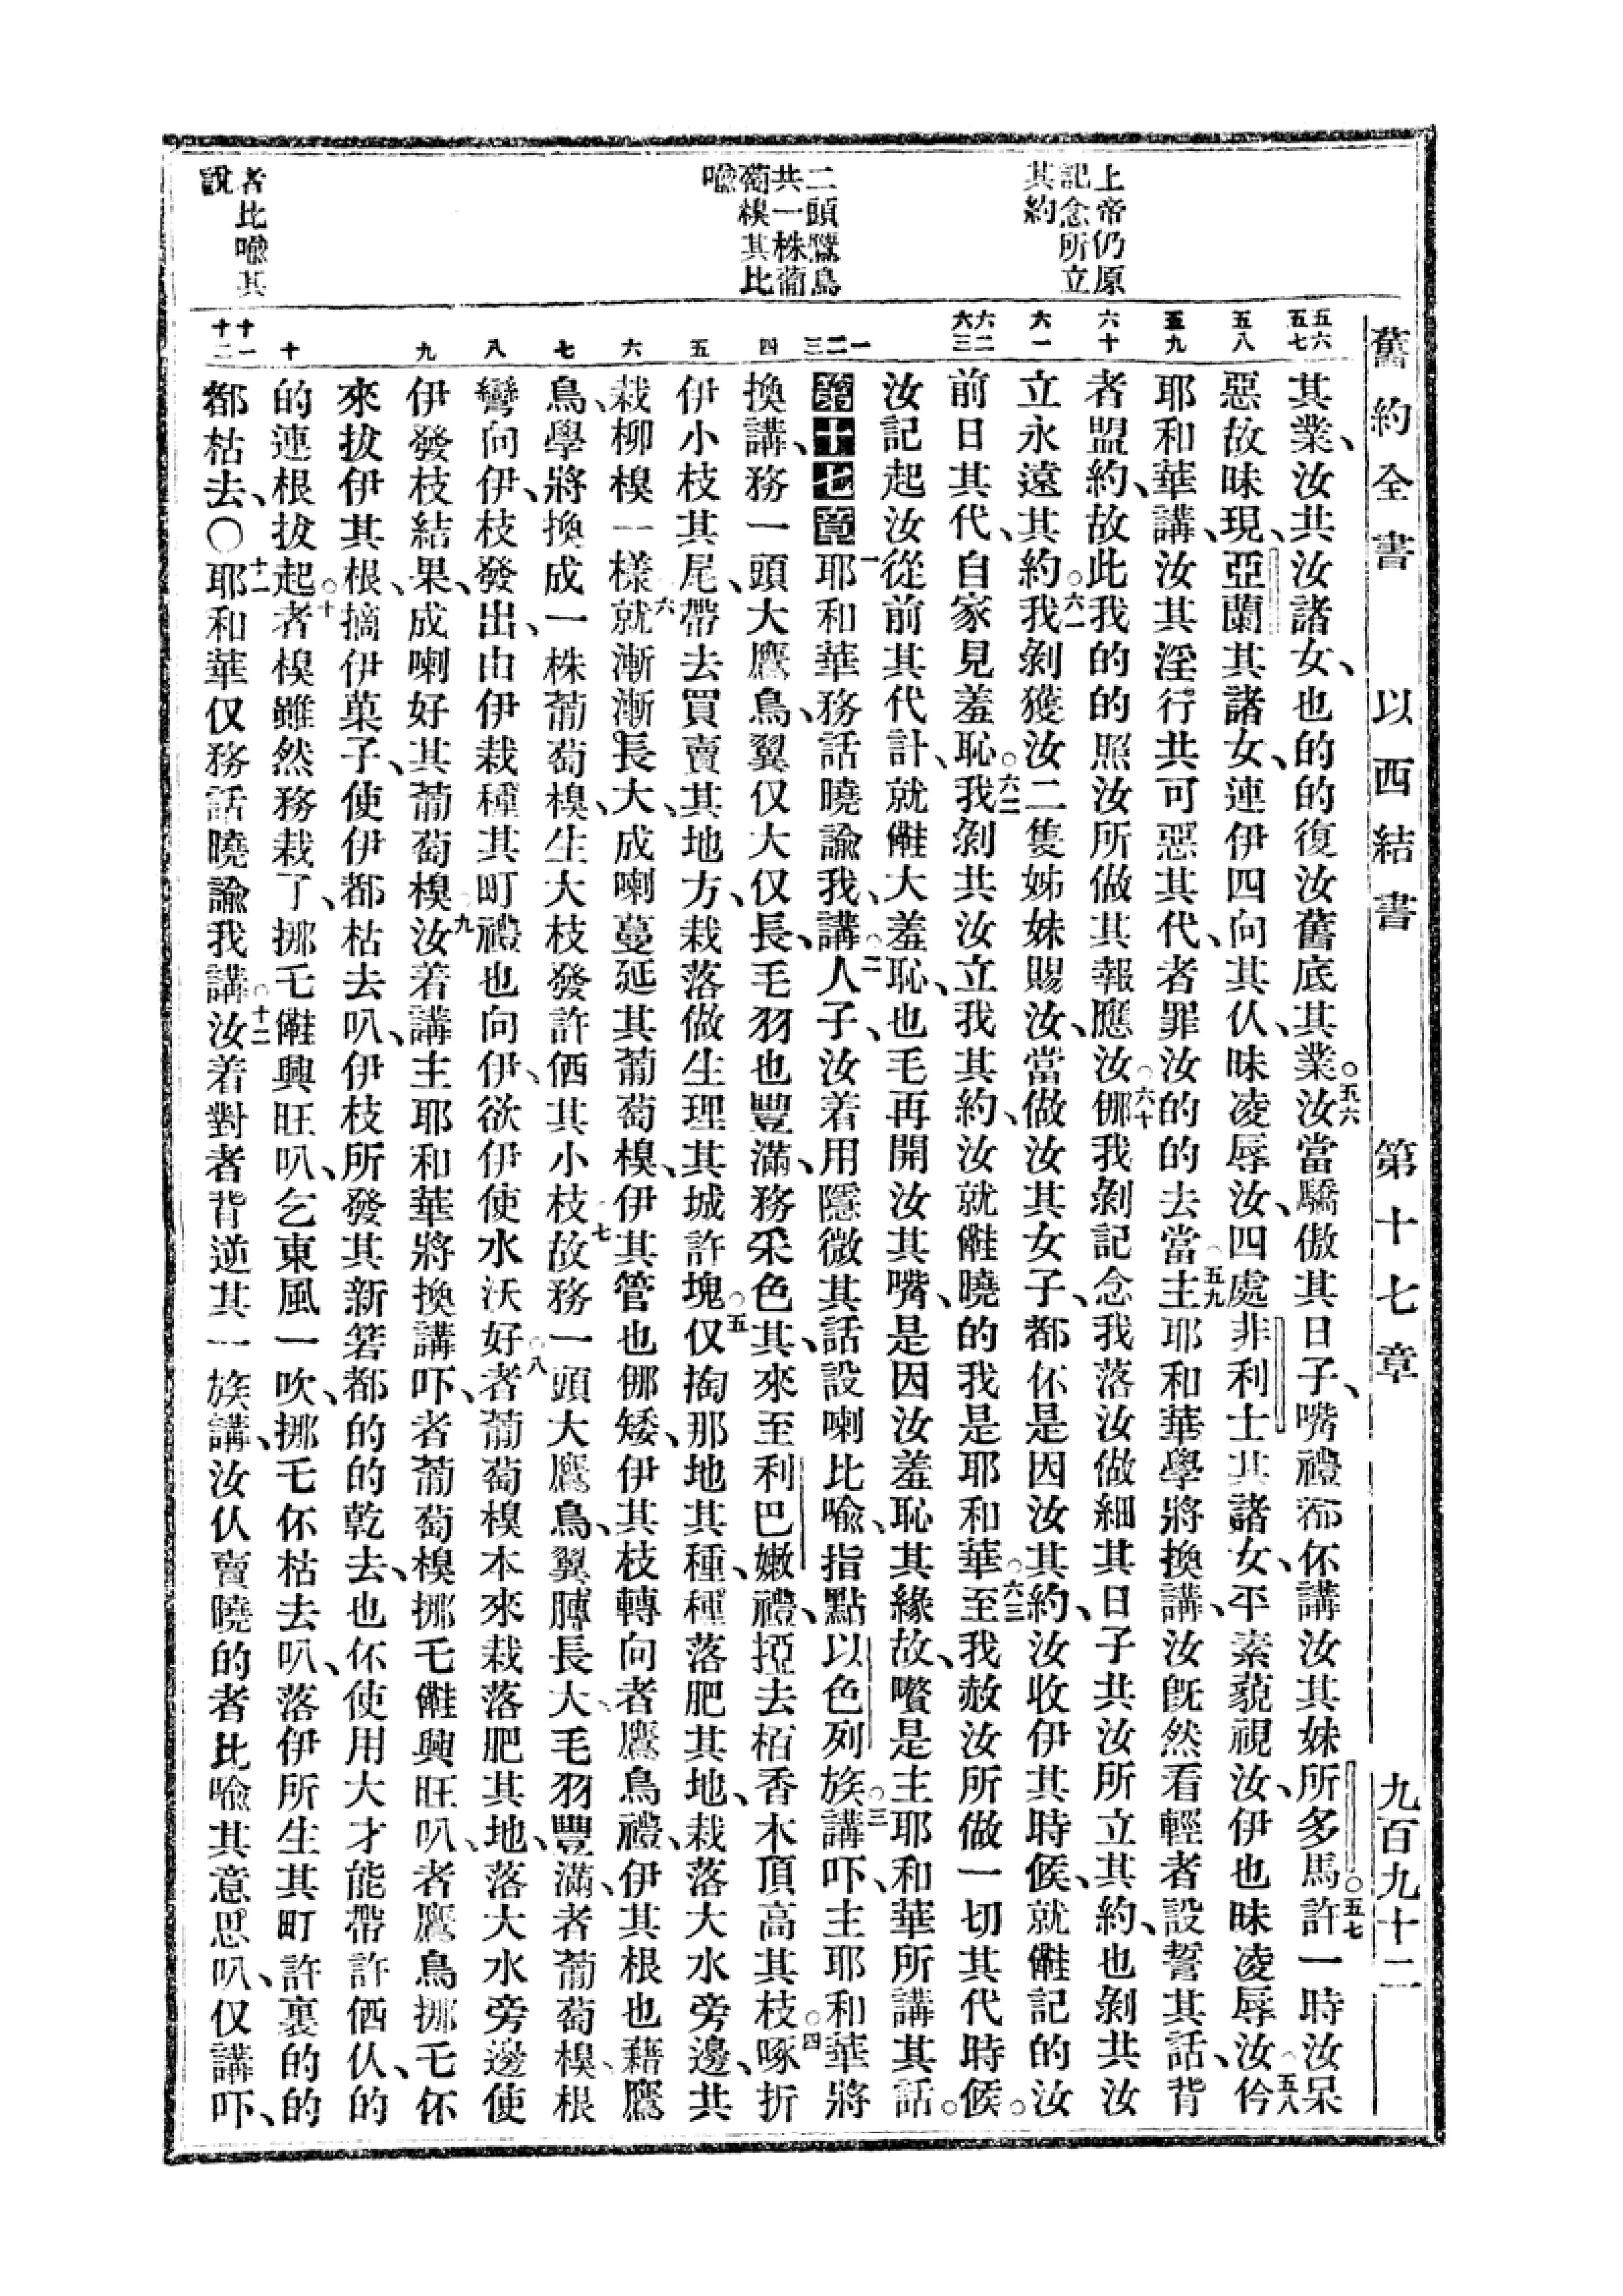 舊約全書 以西結書 第十七章 九百九十二
上帝仍原
記念所立
其約
二頭鷹鳥
共一株葡
萄模其比
喻
者比喻其
說
五六 五七 五八 五九 六十 六一 六二 六三 一 二 三 四 五 六 七 八 九 十 十一 十二
其業、汝共汝諸女、也的的復汝舊底其業○五六汝當驕傲其日子、嘴禮布伓講汝其妹所多馬許○五七一時汝呆
惡故昧現、亞蘭其諸女、連伊四向其仈、昧凌辱汝、四處非利士其諸女、平素藐視汝、伊也昧凌辱○五八汝仱
耶和華講、汝其淫行共可惡其代、者罪汝的的去當○五九主耶和華學將換講、汝旣然看輕者設誓其話、背
者盟約、故此我的的照汝所做其報應○六十汝㑚我剝記念我落汝做細其日子共汝所立其約、也剝共汝
立永遠其約○六一我剝獲汝二隻姊妹賜汝、當做汝其女子、都伓是因汝其約、汝收伊其時候、就儺記的汝
前日其代、自家見羞恥○六二我剝共汝立我其約、汝就儺曉的我是耶和華○六三至我赦汝所做一切其代時候○
汝記起汝從前其代計、就儺大羞恥、也毛再開汝其嘴、是因汝羞恥其緣故、嘐是主耶和華所講其話○
第十七章 一耶和華務話曉諭我、講○二人子、汝着用隱微其話設喇比喻、指點以色列族○三講吓、主耶和○四華將
換講、務一頭大鷹鳥、翼仅大仅長、毛羽也豐滿、務采色其、來至利巴嫩禮、掗去栢香木頂高其枝啄折
伊小枝其尾、帶去買賣其地方、栽落做生理其城許塊○五仅掏那地其種、種落肥其地、栽落大水旁邊、共
栽柳模一樣○六就漸漸長大、成喇蔓延其葡萄模、伊其管也㑚矮、伊其枝轉向者鷹鳥禮、伊其根也藉鷹
鳥、學將換成一株葡萄模、生大枝發許㑽其小枝○七故務一頭大鷹鳥、翼膊長大、毛羽豐滿、者葡萄模、根
彎向伊、枝發出、由伊栽種其町禮也向伊、欲伊使水沃好○八者葡萄模本來栽落肥其地、落大水旁邊使
伊發枝結果、成喇好其葡萄模○九汝着講、主耶和華將換講吓、者葡萄模挪乇儺興旺叭、者鷹鳥挪乇伓
來拔伊其根、摘伊菓子、使伊都枯去叭、伊枝所發其新箬都的的乾去、也伓使用大才能帶許㑽仈、的
的連根拔起○十者模雖然務栽了、挪乇儺興旺叭、乞東風一吹、挪乇伓枯去叭、落伊所生其町許裏的的
都枯去、〇十一耶和華仅務話曉諭我講○十二汝着對者背逆其一族講、汝仈賣曉的者比喻其意思叭、仅講吓、